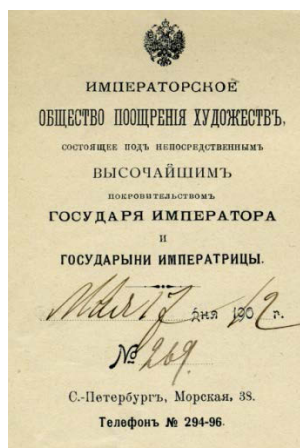 ИМПЕРАТОРСКОЕ
ОБЩЕСТВО ПООЩРЕНІЯ ХУДОЖЕСТВЪ,
СОСТОЯЩЕЕ ПОДЪ НЕПОСРЕДСТВЕННЫМЪ
ВЫСОЧАЙШИМЪ
ПОКРОВИТЕЛЬСТВОМЪ
ГОСУДАРЯ ИМПЕРАТОРА
И
ГОСУДАРЫНИ ИМПЕРАТРИЦЫ.
Мая 17 дня 1912 г.
№ 269.
С.-Петербургъ, Морская, 38.
Телефонъ № 294-96.